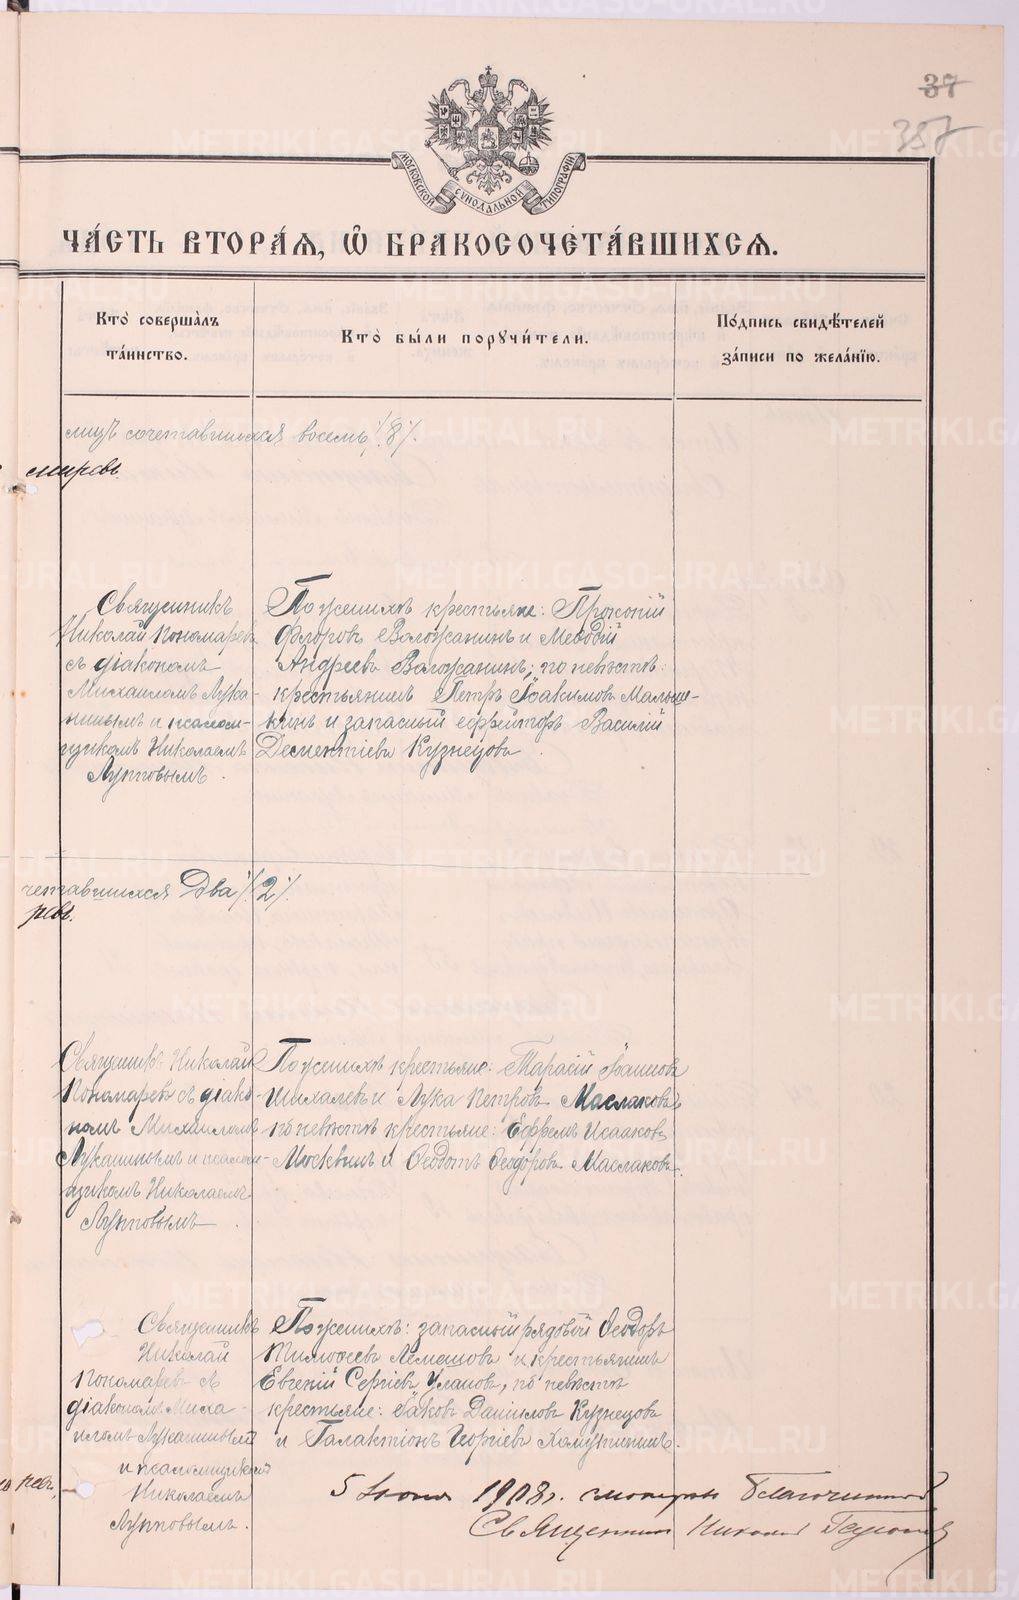 37
357
МОСКОВСКОЙ СУНОДАЛЬНОЙ ТИПОГРАФІИ
ЧА́СТЬ ВТОРА́Я, Ѡ БРАКОСОЧЕТА́ВШИХСЯ.
Кто̀ соверша̀лъ та́инство.
Кто̀ бы́ли поручи́тели.
По́дпись свидѣ́телей за́писи по жела́нїю.
лицъ сочетавшихся восемь /8/.
Священникъ
Николай Пономаревъ
съ діакономъ
Михаиломъ Лука-
нинымъ и псаломщ-
щикомъ Николаемъ
Лупповымъ.
По женихѣ крестьяне: Прокопій
Флоровъ Воложанинъ и Меѳодій
Андреевъ Воложанинъ; по невѣстѣ:
крестьянинъ Петръ Іоакимовъ Малыше-
кинъ и запасный ефрейторъ Василій
Дементіевъ Кузнецовъ.
четавшихся Два /2/.
ревъ.
Священникъ Николай
Пономаревъ съ діако-
номъ Михаиломъ
Луканинымъ и псалом-
щикомъ Николаемъ
Лупповымъ.
По женихѣ крестьяне: Тарасій Іоанновъ
Шихалевъ и Лука Петровъ Маслаковъ
по невѣстѣ крестьяне: Ефремъ Исааковъ
Москвинъ и Ѳеодотъ Ѳеодоровъ Маслаковъ.
Священникъ
Николай
Пономаревъ съ
діакономъ Миха-
иломъ Луканинымъ
и псаломщикомъ
Николаемъ
Лупповымъ.
По женихѣ: запасный рядовой Ѳеодоръ
Тимоѳеевъ Лемешовъ и крестьянинъ
Евгеній Сергіевъ Улановъ, по невѣстѣ
крестьяне: Іаковъ Даниловъ Кузнецовъ
и Галактіонъ Георгіевъ Хомутининъ.
5 Іюня 1908 г. смотрѣлъ Благочинный
Священникъ Николай